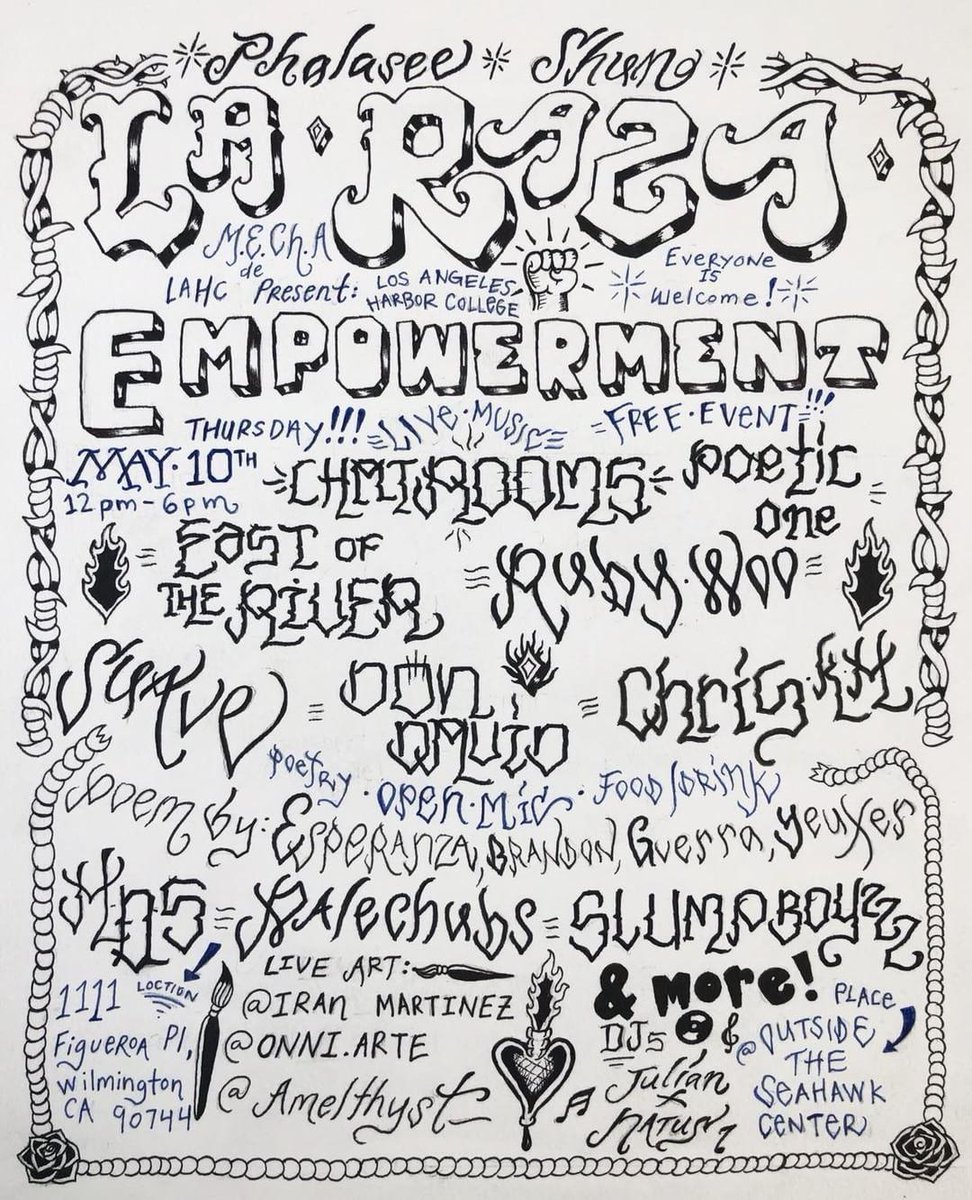 Phalasee Shung
LA RAZA
M.E.Ch.A
de
LAHC Present:
LOS ANGELES
HARBOR COLLEGE
EVERYONE
IS
Welcome!
EMPOWERMENT
THURSDAY!!!
LIVE·MUSIC
FREE·EVENT!!!
MAY·10TH
12pm-6pm
poetic
one
EAST OF
THE RIVER
Ruby·Woo
DON
Chris·
POETRY · OPEN·MIC · FOOD/DRINK
poem by: ESPERANZA, BRANDON, Guerra, Yeuxes
Palechubs
SLUMPBOYZZZ
1111
LOCTION
Figueroa Pl,
Wilmington
CA 90744
LIVE ART:
@IRAN MARTINEZ
@ONNI.ARTE
@Amelthyst
& MORE!
DJs
Julian
PLACE
@OUTSIDE
THE
SEAHAWK
CENTER